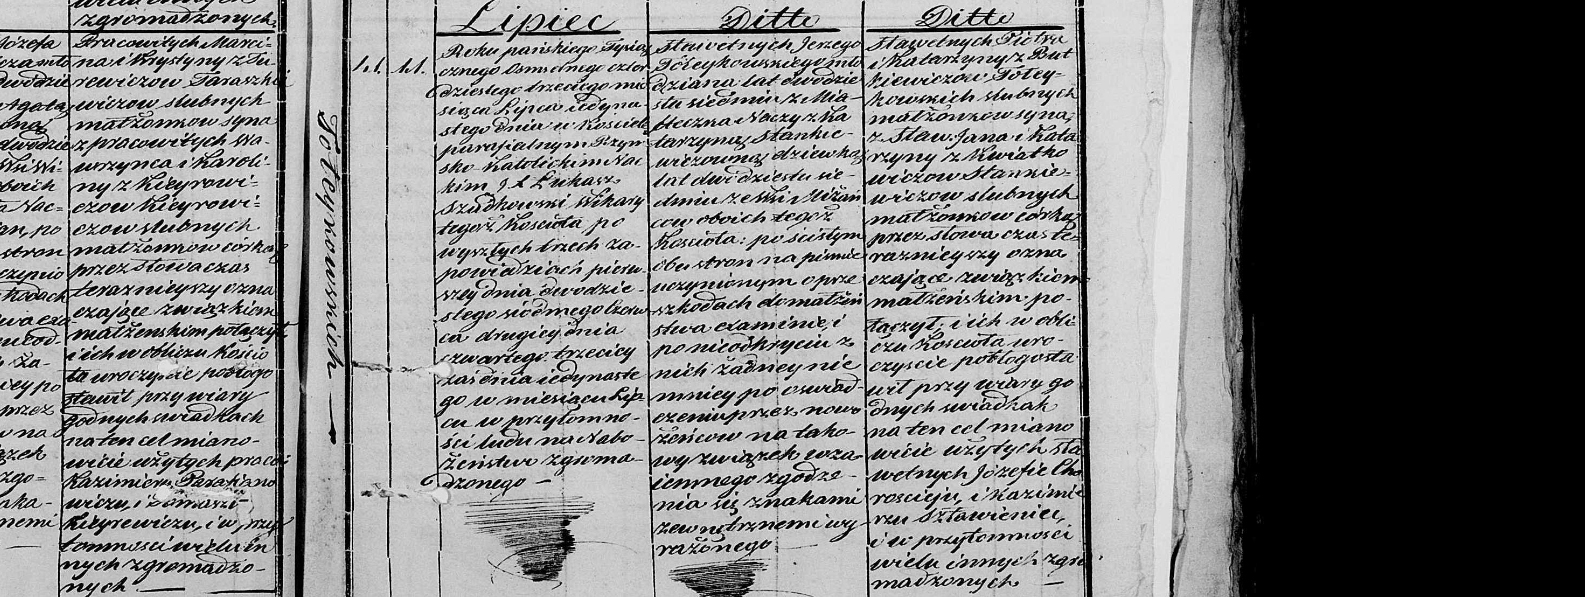 zgromadzonych
Józefa
dwodzie
Agata
dwodzie
oboich
stron
Pracowitych Marci-
na i Krystyny z Ju
rewiczow Taraszki
wiczow slubnych
małżonkow syna
z pracowitych Wa-
wrzynca i Karoli-
ny z Kieyrowi-
czow Kieyrowi-
czow slubnych
małżonkow córką
przez słowa czas
teraznieyszy ozna
czające związkiem
małżenskim połączył
i ich w obliczu Kościo
ła uroczyście pobłogo
sławił przy wiary
godnych swiadkach
na ten cel miano-
wicie użytych praco
Kazimierzu
wiczu, i Tomaszu
Kieyrewiczu, i w przy
tomności wielu in
nych zgromadzo-
nych
Tołeykowskich
Lipiec
11. 11.
Roku pańskiego Tysiąc
cznego Osmsetnego czter
dziestego trzeciego mie
siąca Lipca iedyna
stego dnia w Kościele
parafialnym Rzym
sko Katolickim Nac
kim J. X Łukasz
Szudkowski Wikary
tegoż Kościoła po
wyszłych trzech za-
powiedziach pierw
szey dnia dwodzie-
stego siódmego Czerw
ca drugiey dnia
czwartego trzeciey
zaś dnia iedynaste
go w miesiącu Lip
cu w przytomno-
ści ludu na Nabo-
żeństwo zgroma-
dzonego —
Ditto
Sławetnych Jerzego
Tołeykowskiego mło
dziana lat dwodzie
stu siedmiu z Mia-
steczka Naczy z Ka
tarzyną Stankie-
wiczowną dziewką
lat dwudziestu sie-
dmiu z wsi Miżan
cow oboich tegoż
Kościoła: po ścisłym
obu stron na piśmie
uczynionym o prze
szkodach do małżeń
stwa examinie, i
po nieodkryciu z
nich żadney nie
mniey po oswiad-
czeniu przez nowo
żeńcow na tako-
wy związek wza
iemnego zgodze-
nia się znakami
zewnętrznemi wy
rażonego
Ditto
Sławetnych Piotra
i Katarzyny z But
kiewiczow Tołey-
kowskich slubnych
małżonkow syna,
z Sław. Jana i Kata
rzyny z Kwiatko
wiczow Stankie-
wiczow slubnych
małżonkow córką
przez słowa czas te-
raznieyszy ozna
czające związkiem
małżenskim po-
łączył, i ich w obli-
czu Kościoła uro-
czyście pobłogosła
wił przy wiary go
dnych swiadkach
na ten cel miano
wicie użytych sła
wetnych Józefie Cho
rościeju, i Kazimie
rzu Szławieniec,
i w przytomności
wielu innych zgro
madzonych —